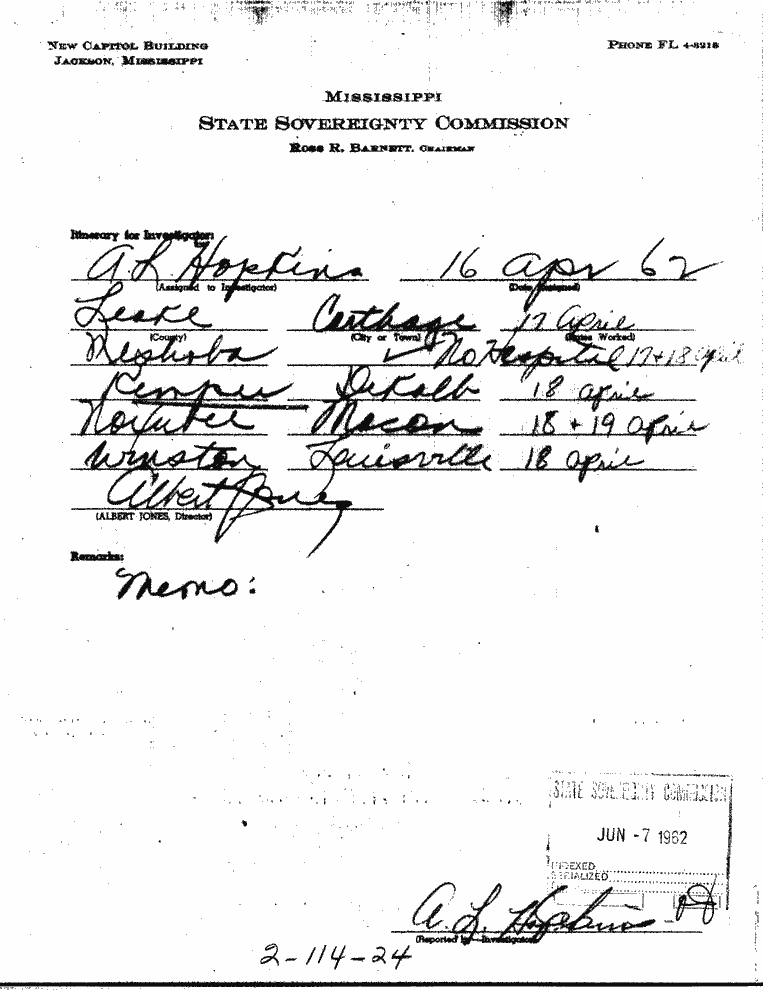 NEW CAPITOL BUILDING
JACKSON, MISSISSIPPI
PHONE FL 4-3218
MISSISSIPPI
STATE SOVEREIGNTY COMMISSION
ROSS R. BARNETT, CHAIRMAN
Itinerary for Investigator:
A L Hopkins 16 Apr 62
(Assigned to Investigator) (Date Assigned)
Leake Carthage 17 April
(County) (City or Town) (Dates Worked)
Neshoba ✓ No Hospital 17+18 April
Kemper DeKalb 18 april
Noxubee Macon 18 + 19 april
Winston Louisville 18 april
Albert Jones
(ALBERT JONES, Director)
Remarks:
Memo:
STATE SOVEREIGNTY COMMISSION
JUN -7 1962
INDEXED
SERIALIZED
A. L. Hopkins
(Reported by—Investigator)
2-114-24